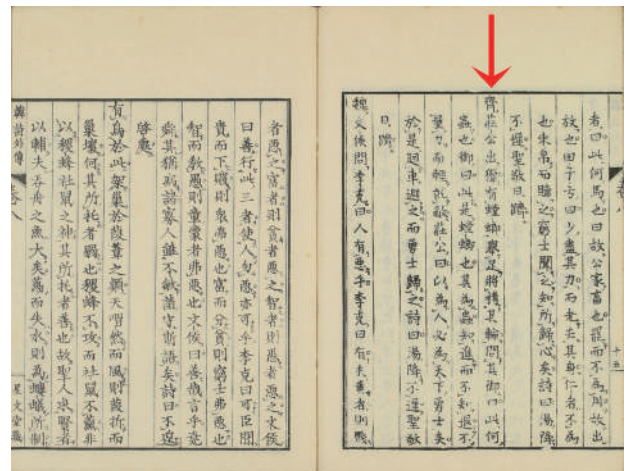 卷八 十五
者曰此何馬也曰故公家畜也罷而不為用故出
放也田子方曰少盡其力而老去其身仁者不為
也束帛而贖之窮士聞之知所歸心矣詩曰湯降
不遲聖敬日躋
齊莊公出獵有螳蜋舉足將搏其輪問其御曰此何
蟲也御曰此是螳蜋也其為蟲知進而不知退不
量力而輕就敵莊公曰以為人必為天下勇士矣
於是迴車避之而勇士歸之詩曰湯降不遲聖敬
日躋
魏文侯問李克曰人有惡乎李克曰有夫貴者則賤
者惡之富者則貧者惡之智者則愚者惡之文侯
曰善行此三者使人勿惡亦可乎李克曰可臣聞
貴而下賤則衆弗惡也富而分貧則窮士弗惡也
智而教愚則童蒙者弗惡也文侯曰善哉言乎堯
舜其猶病諸寡人雖不敏請守斯語矣詩曰不遑
啓處
有鳥於此架巢於葭葦之顛天喟然而風則葭折而
巢壞何其所托者弱也稷蜂不攻而社鼠不薰非
以稷蜂社鼠之神其所托者善也故聖人求賢者
以輔夫吞舟之魚大矣蕩而失水則為螻蟻所制
韓詩外傳 卷八 星文堂藏